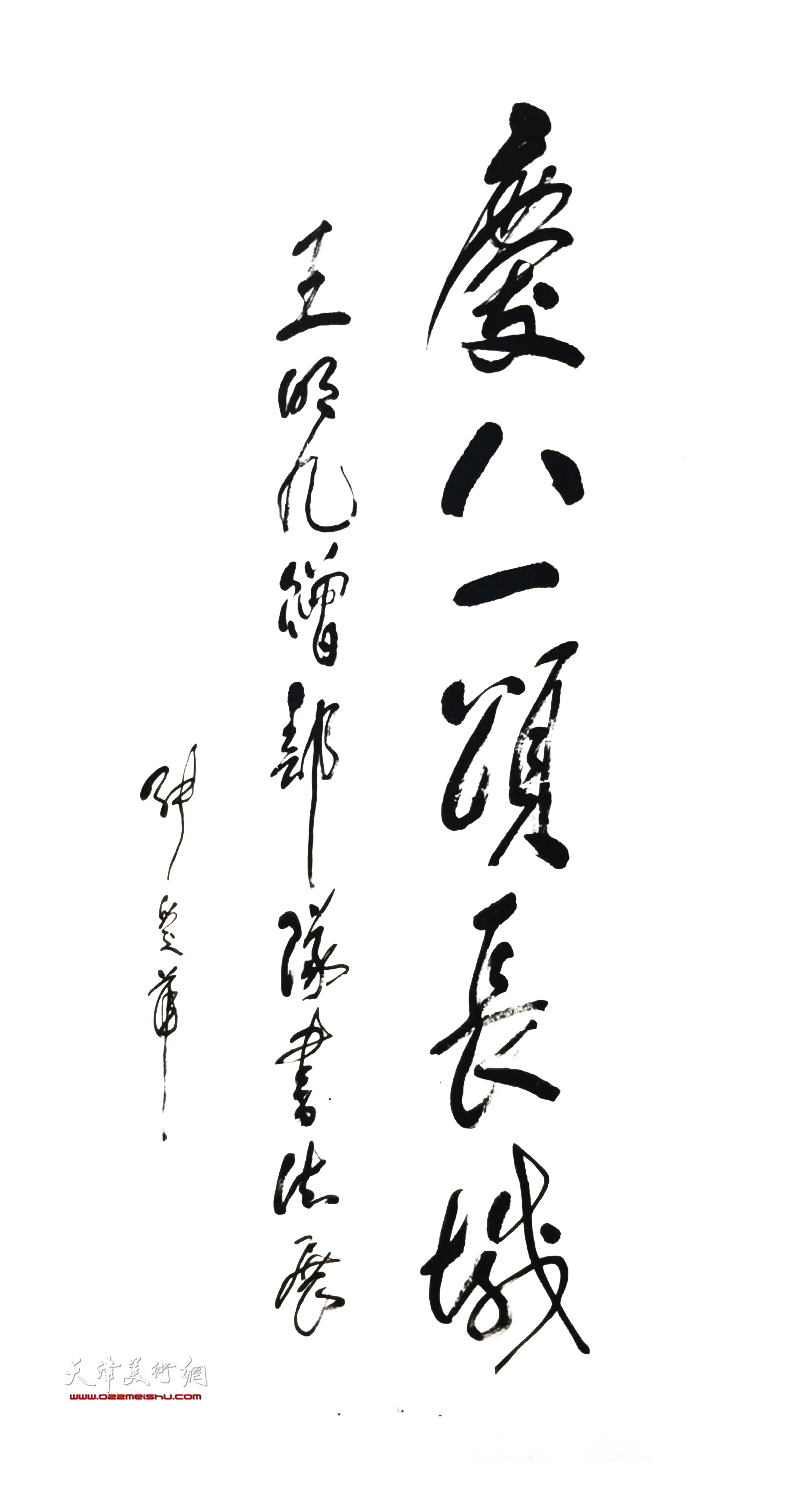 慶八一頌長城
王明九贈部隊書法展
華
天津美術網
www.022meishu.com